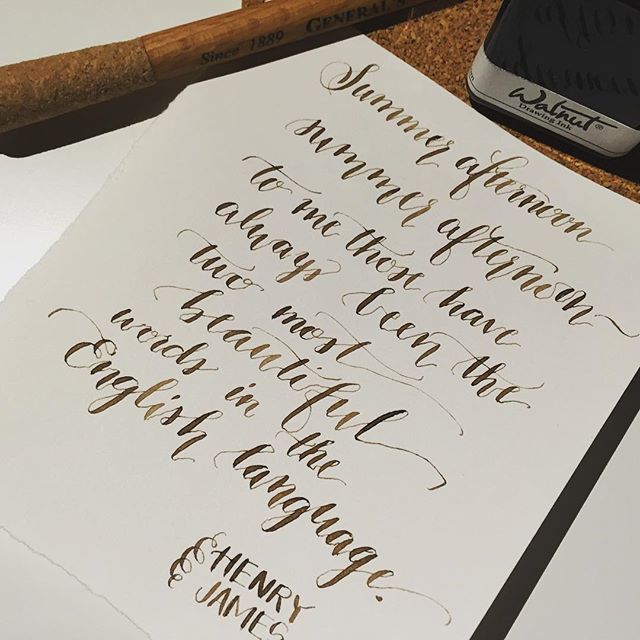 Since 1889 GENERAL'S
Walnut®
Drawing Ink
Summer afternoon
summer afternoon
to me those have
always been the
two most
beautiful
words in the
English language.
HENRY
JAMES